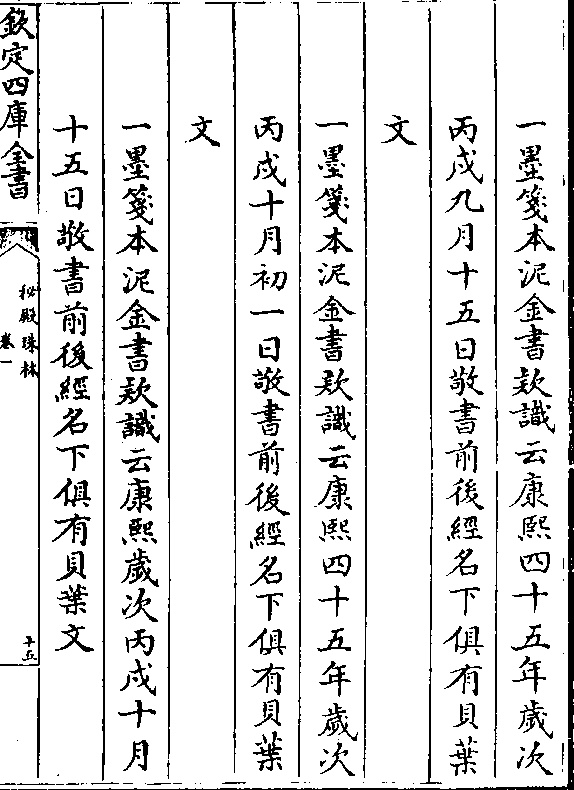 一墨箋本泥金書款識云康熙四十五年歲次
丙戌九月十五日敬書前後經名下俱有貝葉
文
一墨箋本泥金書款識云康熙四十五年歲次
丙戌十月初一日敬書前後經名下俱有貝葉
文
一墨箋本泥金書款識云康熙歲次丙戌十月
十五日敬書前後經名下俱有貝葉文
欽定四庫全書
秘殿珠林
卷一
十五